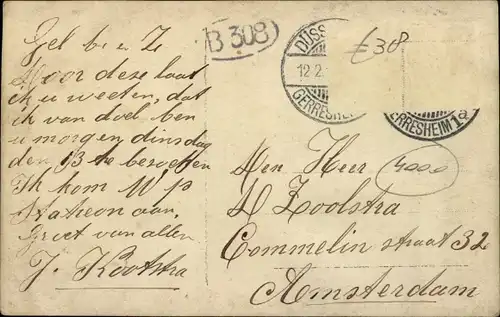 Gel b. e. Z
Voor deze laat
ik u weeten, dat
ik van doel ben
u morgen dinsdag
den 13 te
Ik kom W P
Stateon aan,
Groet van allen
J. Kootstra
B 308
DÜSS
12.2.
GERRESHE
ERRESHEIM 1a
£38
4000
Den Heer
D Zoolstra
Commelin straat 32
Amsterdam